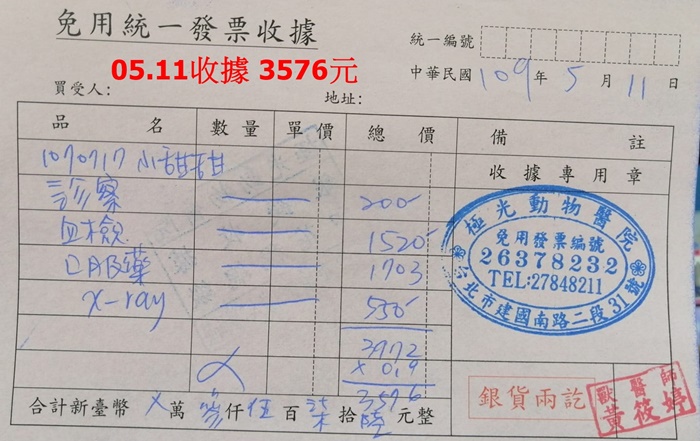 免用統一發票收據
統一編號
05.11收據 3576元
中華民國 109 年 5 月 11 日
買受人： 地址：
品 名 數量 單價 總 價 備 註
收據專用章
1070717 小甜甜
診察 200
血檢 1520
口服藥 1703
x-ray 550
3972
x 0.9
3576
極光動物醫院
免用發票編號
26378232
TEL:27848211
台北市建國南路二段31號
合計新臺幣 X 萬 參 仟 伍 百 柒 拾 陸 元整
銀貨兩訖
獸醫師
黃筱婷